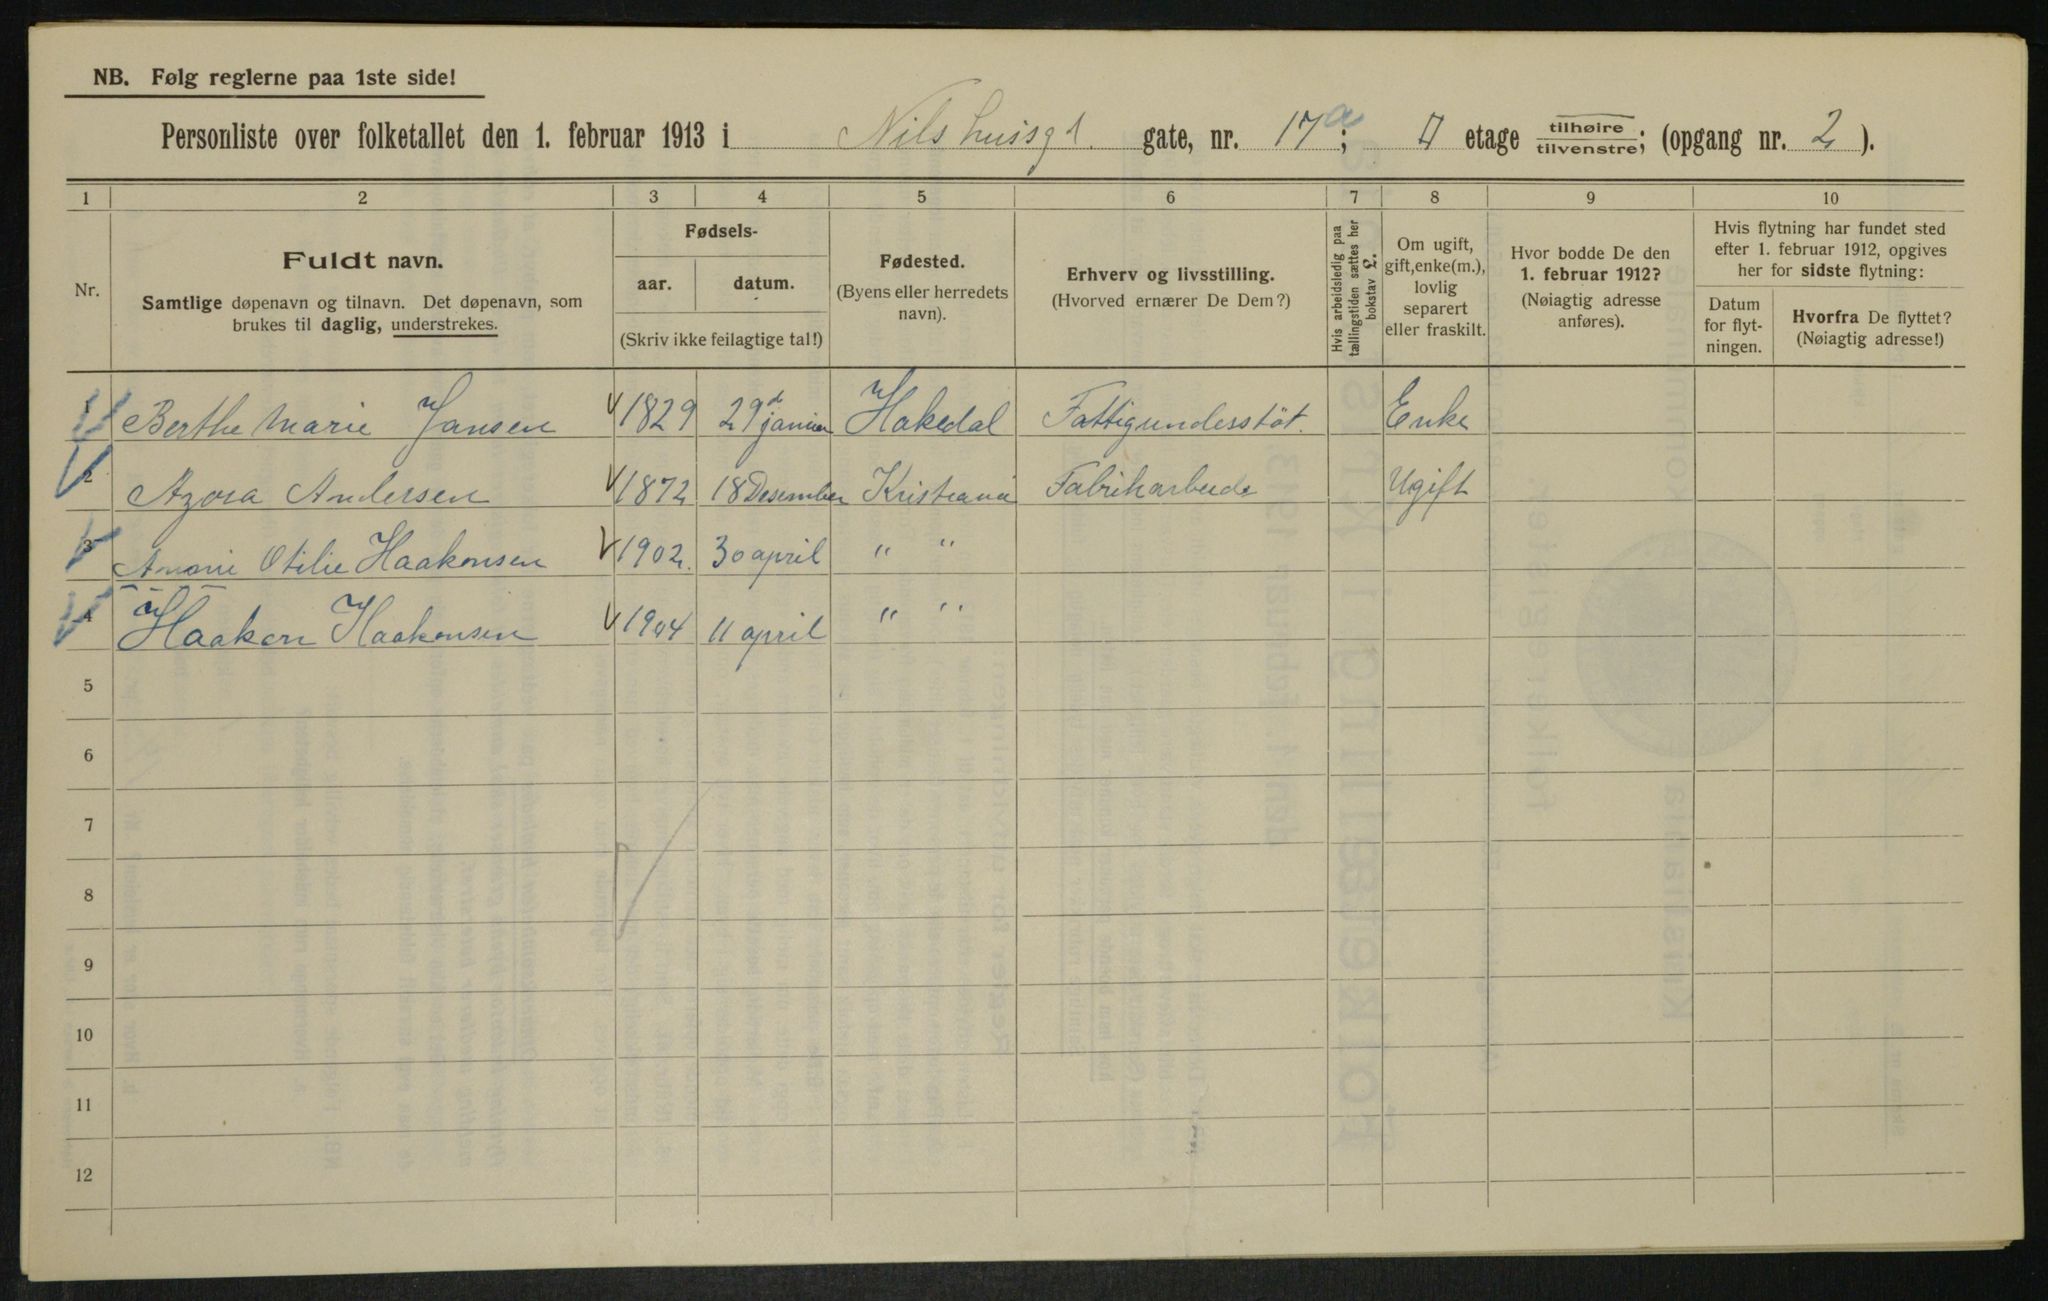 NB. Følg reglerne paa 1ste side!
Personliste over folketallet den 1. februar 1913 i Nils hussgt. gate, nr. 17a; etage tilhøire tilvenstre; (opgang nr. 2).
1 2 3 4 5 6 7 8 9 10
Nr.
Fuldt navn.
Samtlige døpenavn og tilnavn. Det døpenavn, som
brukes til daglig, understrekes.
Fødsels-
aar. datum.
(Skriv ikke feilagtige tal!)
Fødested.
(Byens eller herredets
navn).
Erhverv og livsstilling.
(Hvorved ernærer De Dem?)
Hvis arbeidsledig paa
tællingstiden sættes her
bokstav L.
Om ugift,
gift, enke(m.),
lovlig
separert
eller fraskilt.
Hvor bodde De den
1. februar 1912?
(Nøiagtig adresse
anføres).
Hvis flytning har fundet sted
efter 1. februar 1912, opgives
her for sidste flytning:
Datum
for flyt-
ningen.
Hvorfra De flyttet?
(Nøiagtig adresse!)
1 Berthe Marie Jansen 1829 29d januar Hakedal Fattigunderstöt. Enke
2 Azora Andersen 1872 18 Desember Kristiania Fabrikarbeide Ugift
3 Otilie Haakonsen 1902. 30 april " "
4 Haakon Haakonsen 1904 11 april " "
5
6
7
8
9
10
11
12